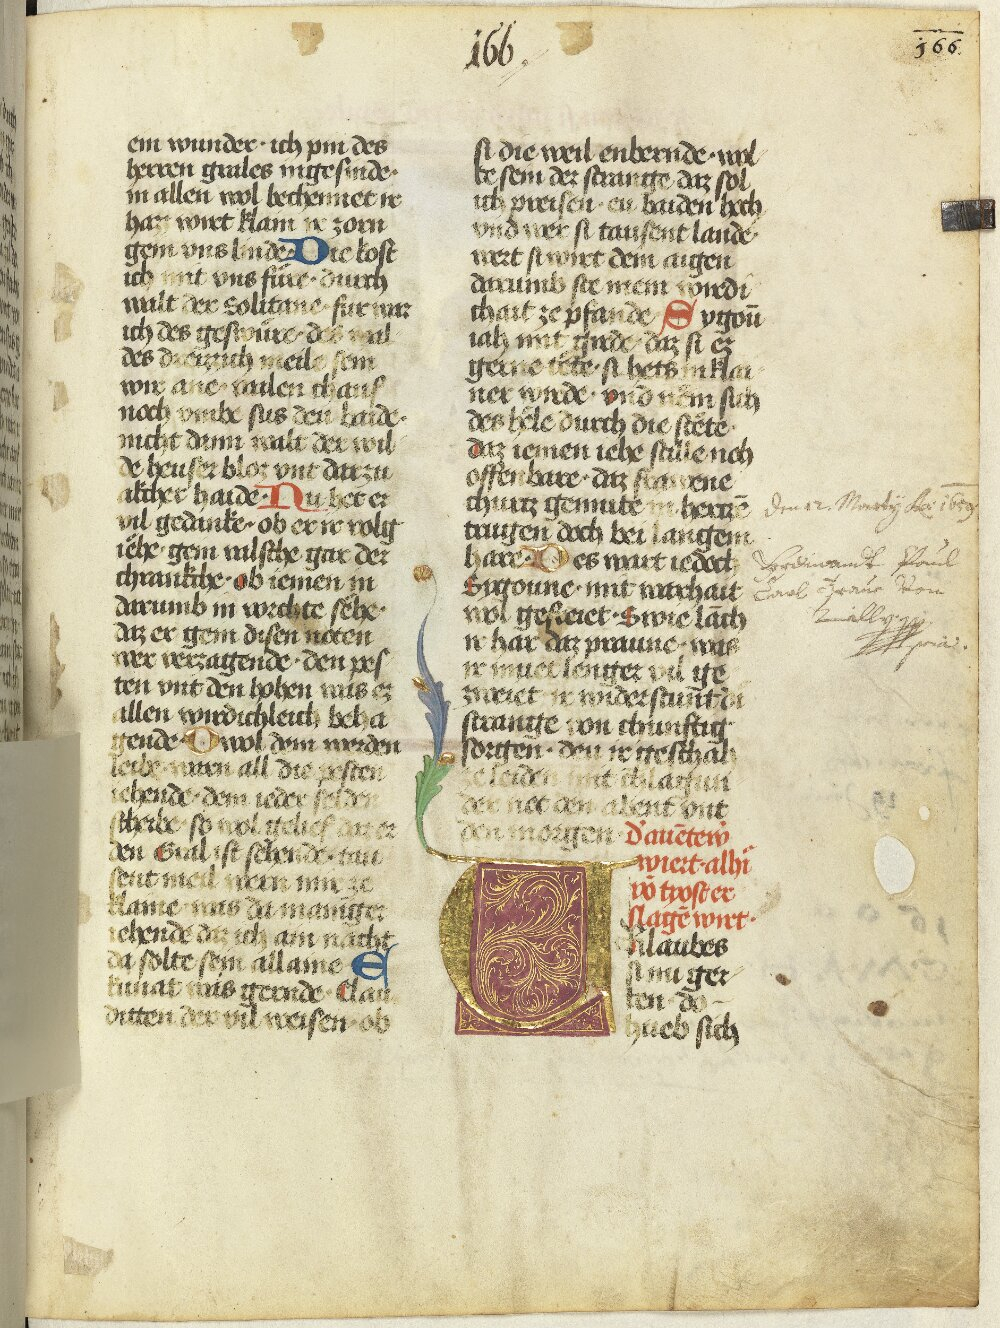 166.
166
ein wunder · ich pin des
herren grales ingesinde ·
in allen wol bechennet ir
harz wirt klain ir zorn
gem vns linde · Die kost
ich mit vns füre · durch
walt der Solitane · fur war
ich des geswüre · des wal
des dreizzich meile sein
wir ane · vailen chauf
noch vmbe sus den baide ·
nicht dann walt der wil
de heuser bloz vnt darzu
alther haide · Nu het er
vil gedanke · ob er ir volg
iehe · gem valsche gar der
chranckhe · ob iemen in
darumb in vorchte sehe ·
daz er gem disen noten
wer verzagende · den pes
ten vnt den hohen was er
allen wirdichleich beha
gende · O wol dem werden
leibe · warn all die pesten
iehende · dem ieder selden
scheibe · so wol gelief daz er
den Gral ist sehende · tau
sent meil wern mir ze
klaine · was da maniger
iehende daz ich am nacht
da solte sein allaine E
kunat was gernde · Clau
ditten der vil weisen · ob
si die weil enbernde · wol
be sein der strange daz sol
ich preisen · en baiden hoch
vnd wer si tausent lande ·
wert si wirt dem augen
darumb ste mein wirdi
chait ze pfande · Sygoun
iah mit girde · daz si ez
gerne tete · si hets in klai
ner wirde · vnd nem sich
des hele durch die stete ·
daz iemen iehe stille nch
offenbare · daz frawene
churtz gemute in hertzen
traugen doch bei langem
hare · Des wart iedoch
Sygoune · mit warhait
wol gefreiet · Swie lanch
ir har daz praune · was
ir muet lenger vil ge
zweiet ir widerstunt di
strange von chunftig
sorgen · den ir geschah
ze leiden mit tschlagun
der net den abent vnt
den morgen · D'auenteur
wiert · alhi
von trost er
klagen wirt ·
Urlaubes
si nu ger
ten · do
hueb sich
den 12. Martij Ao 1659
Ferdinandt Paul
Carl Graue von